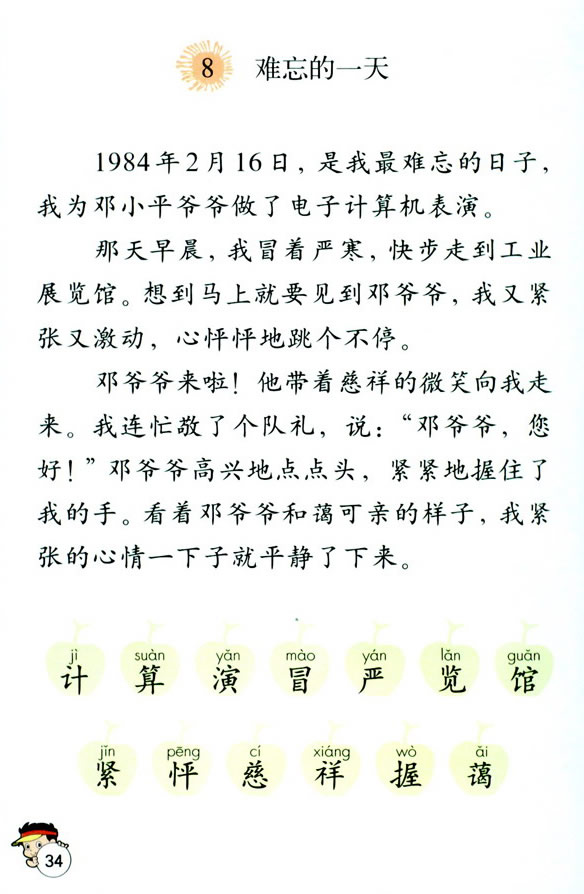 8 难忘的一天
1984年2月16日，是我最难忘的日子，
我为邓小平爷爷做了电子计算机表演。
那天早晨，我冒着严寒，快步走到工业
展览馆。想到马上就要见到邓爷爷，我又紧
张又激动，心怦怦地跳个不停。
邓爷爷来啦！他带着慈祥的微笑向我走
来。我连忙敬了个队礼，说：“邓爷爷，您
好！”邓爷爷高兴地点点头，紧紧地握住了
我的手。看着邓爷爷和蔼可亲的样子，我紧
张的心情一下子就平静了下来。
jì suàn yǎn mào yán lǎn guǎn
计 算 演 冒 严 览 馆
jǐn pēng cí xiáng wò ǎi
紧 怦 慈 祥 握 蔼
34